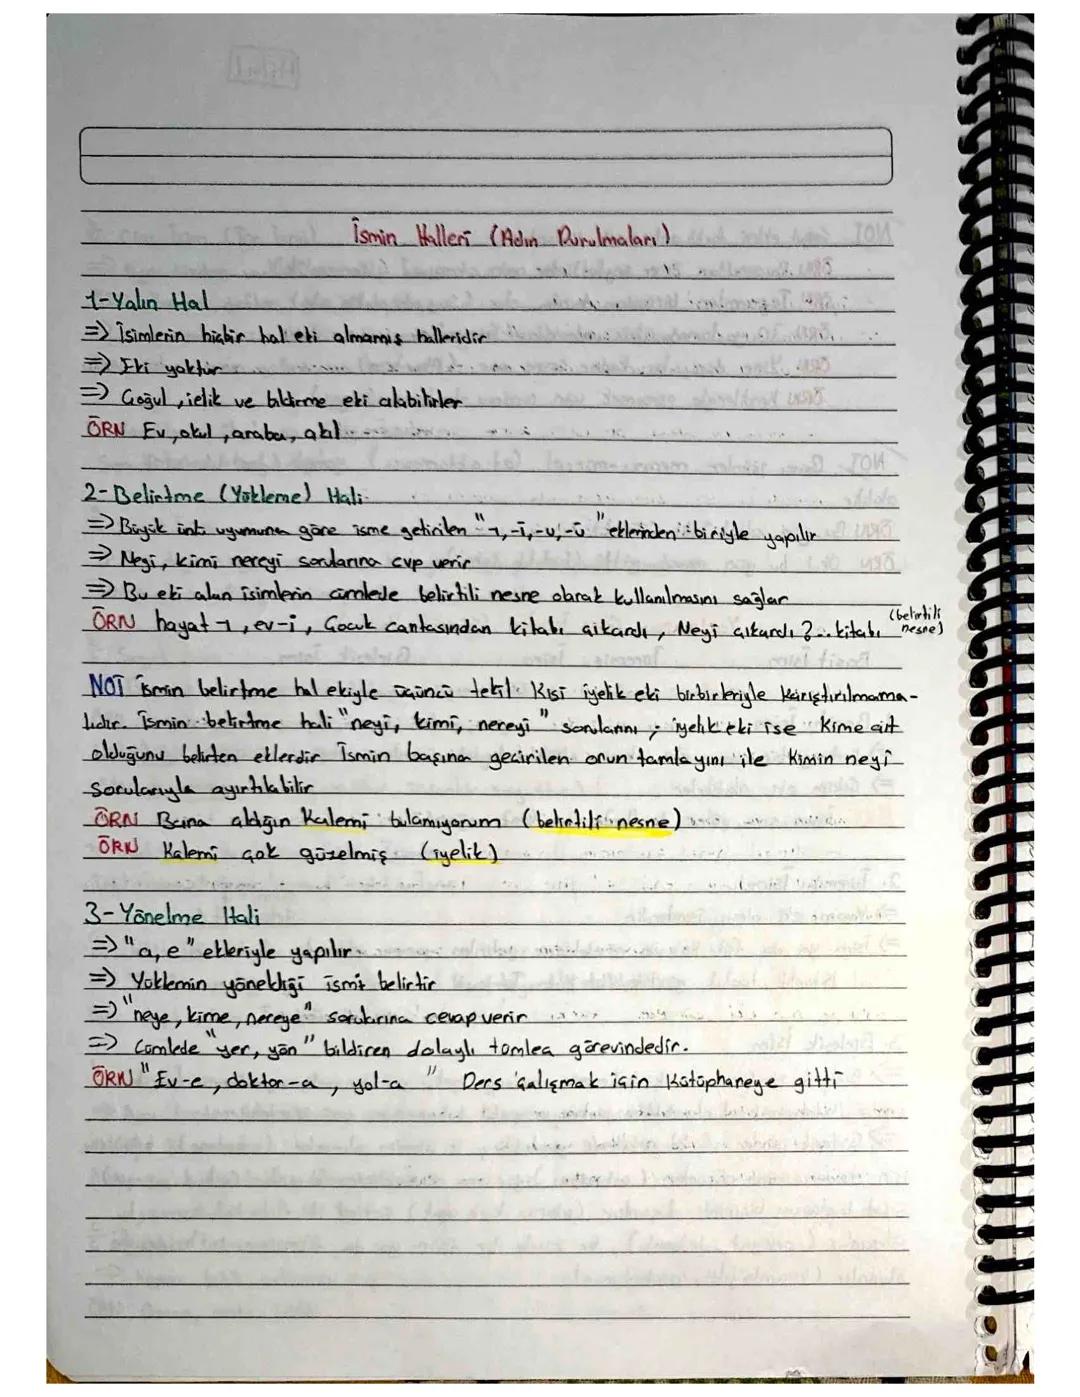 İsmin Halleri (Adın Durulmaları)
1-Yalın Hal
=> İsimlerin hiçbir hal eki almamış halleridir
=> Eki yoktur
=> Çoğul, ielik ve bildirme eki alabilirler
ÖRN Ev, okul, araba, akıl
2-Belirtme (Yükleme) Hali
=> Büyük ünlü uyumuna göre isme getirilen "-ı, -i, -u, -ü" eklerinden biriyle yapılır
=> Neyi, kimi nereyi sorularına cvp verir
=> Bu eki alan isimlerin cümlede belirtili nesne olarak kullanılmasını sağlar
ÖRN hayat-ı, ev-i, Çocuk çantasından kitabı çıkardı, Neyi çıkardı?.. kitabı (belirtili nesne)
NOT ismin belirtme hal ekiyle üçüncü tekil kişi iyelik eki birbirleriyle karıştırılmama-
lıdır. İsmin belirtme hali "neyi, kimi, nereyi" sorularını ; iyelik eki ise kime ait
olduğunu belirten eklerdir İsmin başına getirilen onun tamlayını ile kimin neyi
sorularıyla ayırtılabilir
ÖRN Bana aldığın kalemi bulamıyorum (belirtili nesne)
ÖRN Kalemi çok güzelmiş (iyelik)
3-Yönelme Hali
=> "a, e" ekleriyle yapılır
=> Yüklemin yöneldiği ismi belirtir
=> "neye, kime, nereye" sorularına cevap verir
=> Cümlede "yer, yön" bildiren dolaylı tümleç görevindedir.
ÖRN "Ev-e, doktor-a, yol-a" Ders çalışmak için kütüphaneye gitti